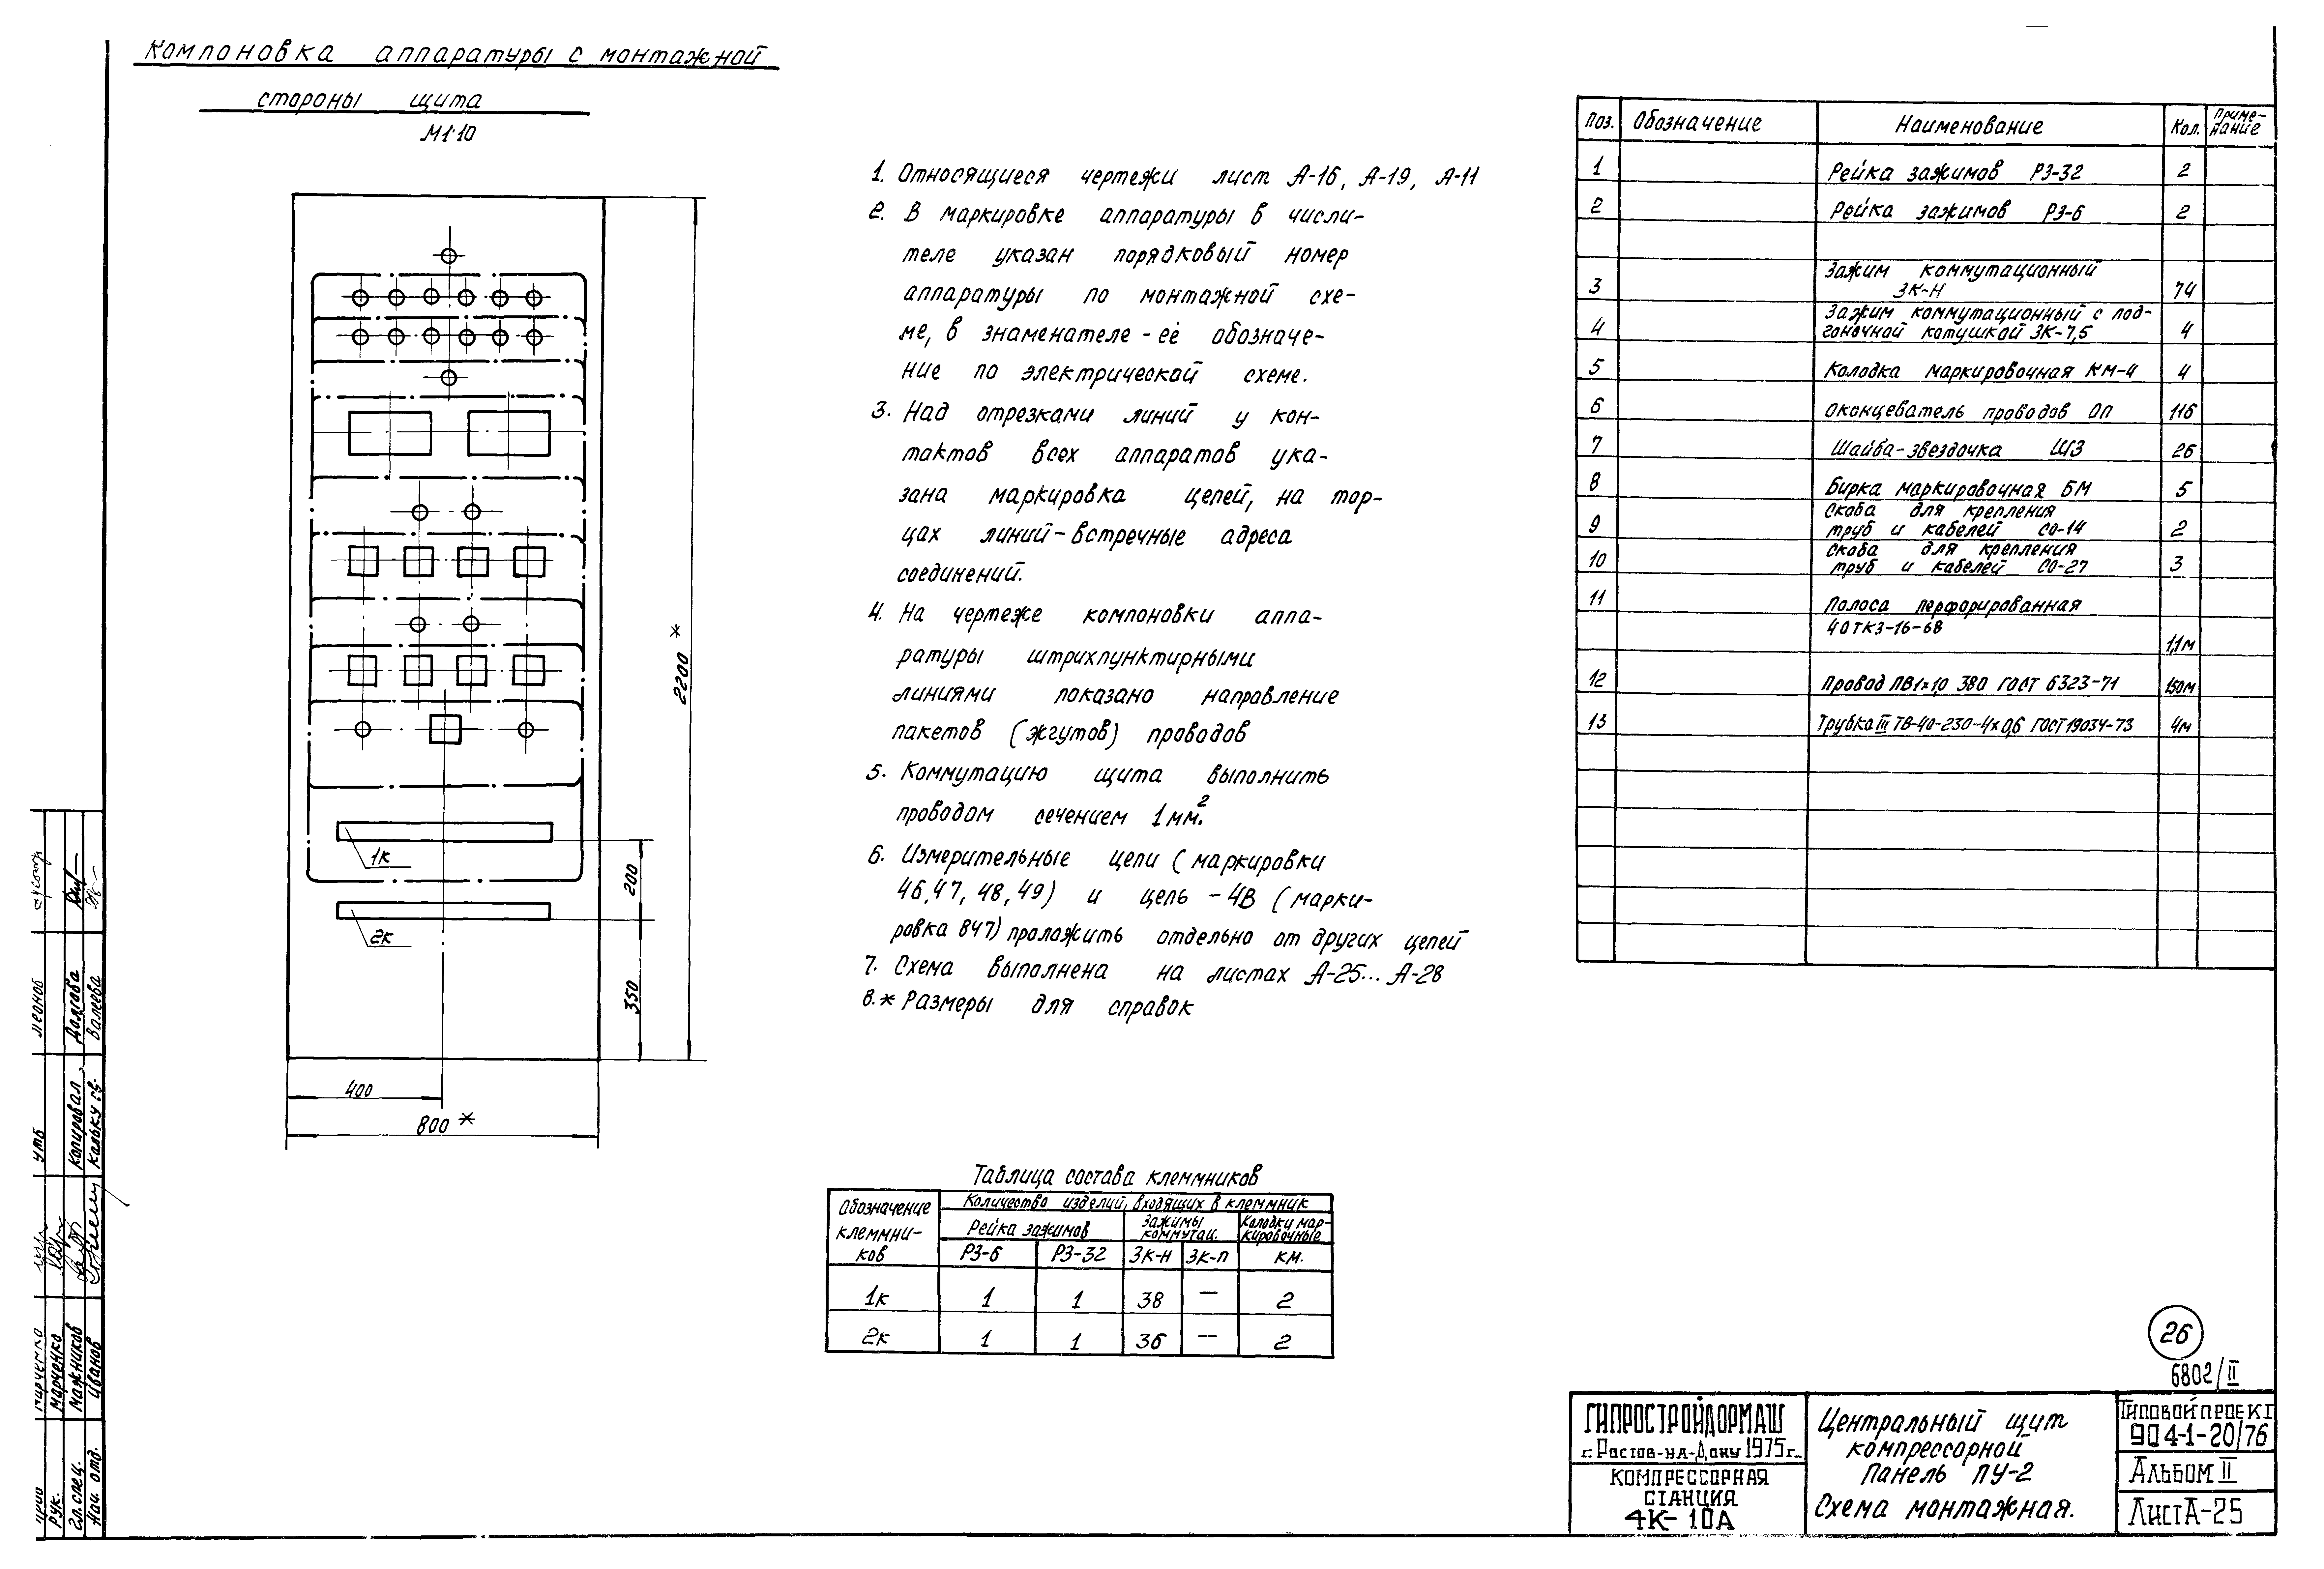 Компоновка аппаратуры с монтажной
стороны щита
М1:10
1к
2к
200
350
2200*
400
800*
1. Относящиеся чертежи лист А-16, А-19, А-11
2. В маркировке аппаратуры в числи-
теле указан порядковый номер
аппаратуры по монтажной схе-
ме, в знаменателе - её обозначе-
ние по электрической схеме.
3. Над отрезками линий у кон-
тактов всех аппаратов ука-
зана маркировка цепей, на тор-
цах линий-встречные адреса
соединений.
4. На чертеже компоновки аппа-
ратуры штрихпунктирными
линиями показано направление
пакетов (жгутов) проводов
5. Коммутацию щита выполнить
проводом сечением 1мм².
6. Измерительные цепи (маркировки
46,47, 48, 49) и цепь -4В (марки-
ровка 847) проложить отдельно от других цепей
7. Схема выполнена на листах А-25... А-28
8.* Размеры для справок
Таблица состава клеммников
Обозначение клеммни-ков
Количество изделий, входящих в клеммник
Рейка зажимов
Зажимы коммутац.
Колодки мар-кировочные
РЗ-6 РЗ-32 ЗК-Н ЗК-П КМ.
1к 1 1 38 — 2
2к 1 1 36 — 2
Поз. Обозначение Наименование Кол. Приме-чание
1 Рейка зажимов РЗ-32 2
2 Рейка зажимов РЗ-6 2
Зажим коммутационный
3 ЗК-Н 74
Зажим коммутационный с под-
4 гоночной катушкой ЗК-7,5 4
5 Колодка маркировочная КМ-4 4
6 Оконцеватель проводов ОП 116
7 Шайба-звездочка ШЗ 26
8 Бирка маркировочная БМ 5
Скоба для крепления
9 труб и кабелей СО-14 2
Скоба для крепления
10 труб и кабелей СО-27 3
11 Полоса перфорированная
40ТК3-16-68 1,1м
12 Провод ПВ1х1,0 380 ГОСТ 6323-71 150м
13 Трубка III ТВ-40-230-4х0,6 ГОСТ 19034-73 4м
26
6802/II
ГИПРОСТРОЙДОРМАШ
г. Ростов-на-Дону 1975г.
КОМПРЕССОРНАЯ
СТАНЦИЯ
4К-10А
Центральный щит
компрессорной
Панель ПУ-2
Схема монтажная.
Типовой проект
904-1-20/76
Альбом II
Лист А-25
Леонов
Долгова
Валеева
утб
Копировал
Кальку св.
Марченко
Марченко
Мажников
Иванов
Рук.
Гл. спец.
Нач. отд.